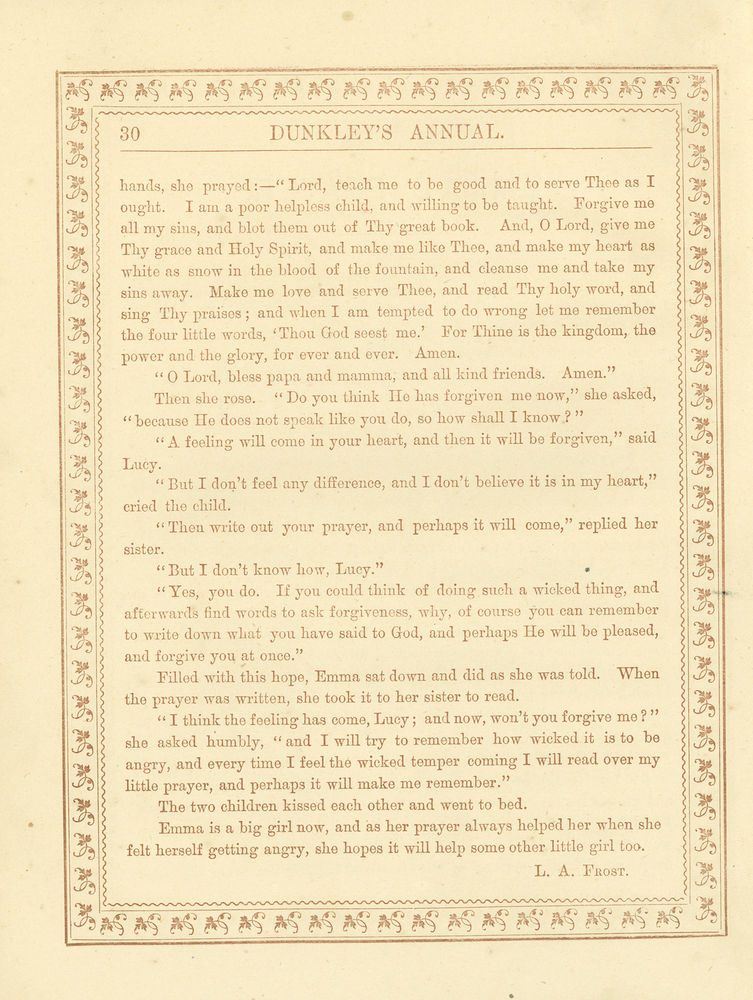 30 DUNKLEY'S ANNUAL.
hands, she prayed:—“Lord, teach me to be good and to serve Thee as I
ought. I am a poor helpless child, and willing to be taught. Forgive me
all my sins, and blot them out of Thy great book. And, O Lord, give me
Thy grace and Holy Spirit, and make me like Thee, and make my heart as
white as snow in the blood of the fountain, and cleanse me and take my
sins away. Make me love and serve Thee, and read Thy holy word, and
sing Thy praises; and when I am tempted to do wrong let me remember
the four little words, ‘Thou God seest me.’ For Thine is the kingdom, the
power and the glory, for ever and ever. Amen.
“O Lord, bless papa and mamma, and all kind friends. Amen.”
Then she rose. “Do you think He has forgiven me now,” she asked,
“because He does not speak like you do, so how shall I know?”
“A feeling will come in your heart, and then it will be forgiven,” said
Lucy.
“But I don't feel any difference, and I don't believe it is in my heart,”
cried the child.
“Then write out your prayer, and perhaps it will come,” replied her
sister.
“But I don't know how, Lucy.”
“Yes, you do. If you could think of doing such a wicked thing, and
afterwards find words to ask forgiveness, why, of course you can remember
to write down what you have said to God, and perhaps He will be pleased,
and forgive you at once.”
Filled with this hope, Emma sat down and did as she was told. When
the prayer was written, she took it to her sister to read.
“I think the feeling has come, Lucy; and now, won't you forgive me?”
she asked humbly, “and I will try to remember how wicked it is to be
angry, and every time I feel the wicked temper coming I will read over my
little prayer, and perhaps it will make me remember.”
The two children kissed each other and went to bed.
Emma is a big girl now, and as her prayer always helped her when she
felt herself getting angry, she hopes it will help some other little girl too.
L. A. FROST.